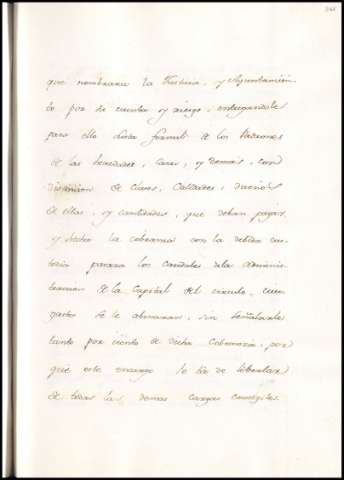 que nombrare la Justicia, y Ayuntamien-
to por su cuenta y riesgo, entregandole
para ello lista formal de los Vecinos
de las heredades, casas, y demas, con
distincion de clases, Calidades, dueños
de ellas, y cantidades, que deban pagar,
y hecha la cobranza con la debida cus-
todia pasara los caudales a la adminis-
tracion de la Capital del circulo, cuios
gastos se le abonaran, sin señalarle
tanto por ciento de dicha Cobranza, por
que este encargo le ha de libertar
de todas las demas cargas concegiles